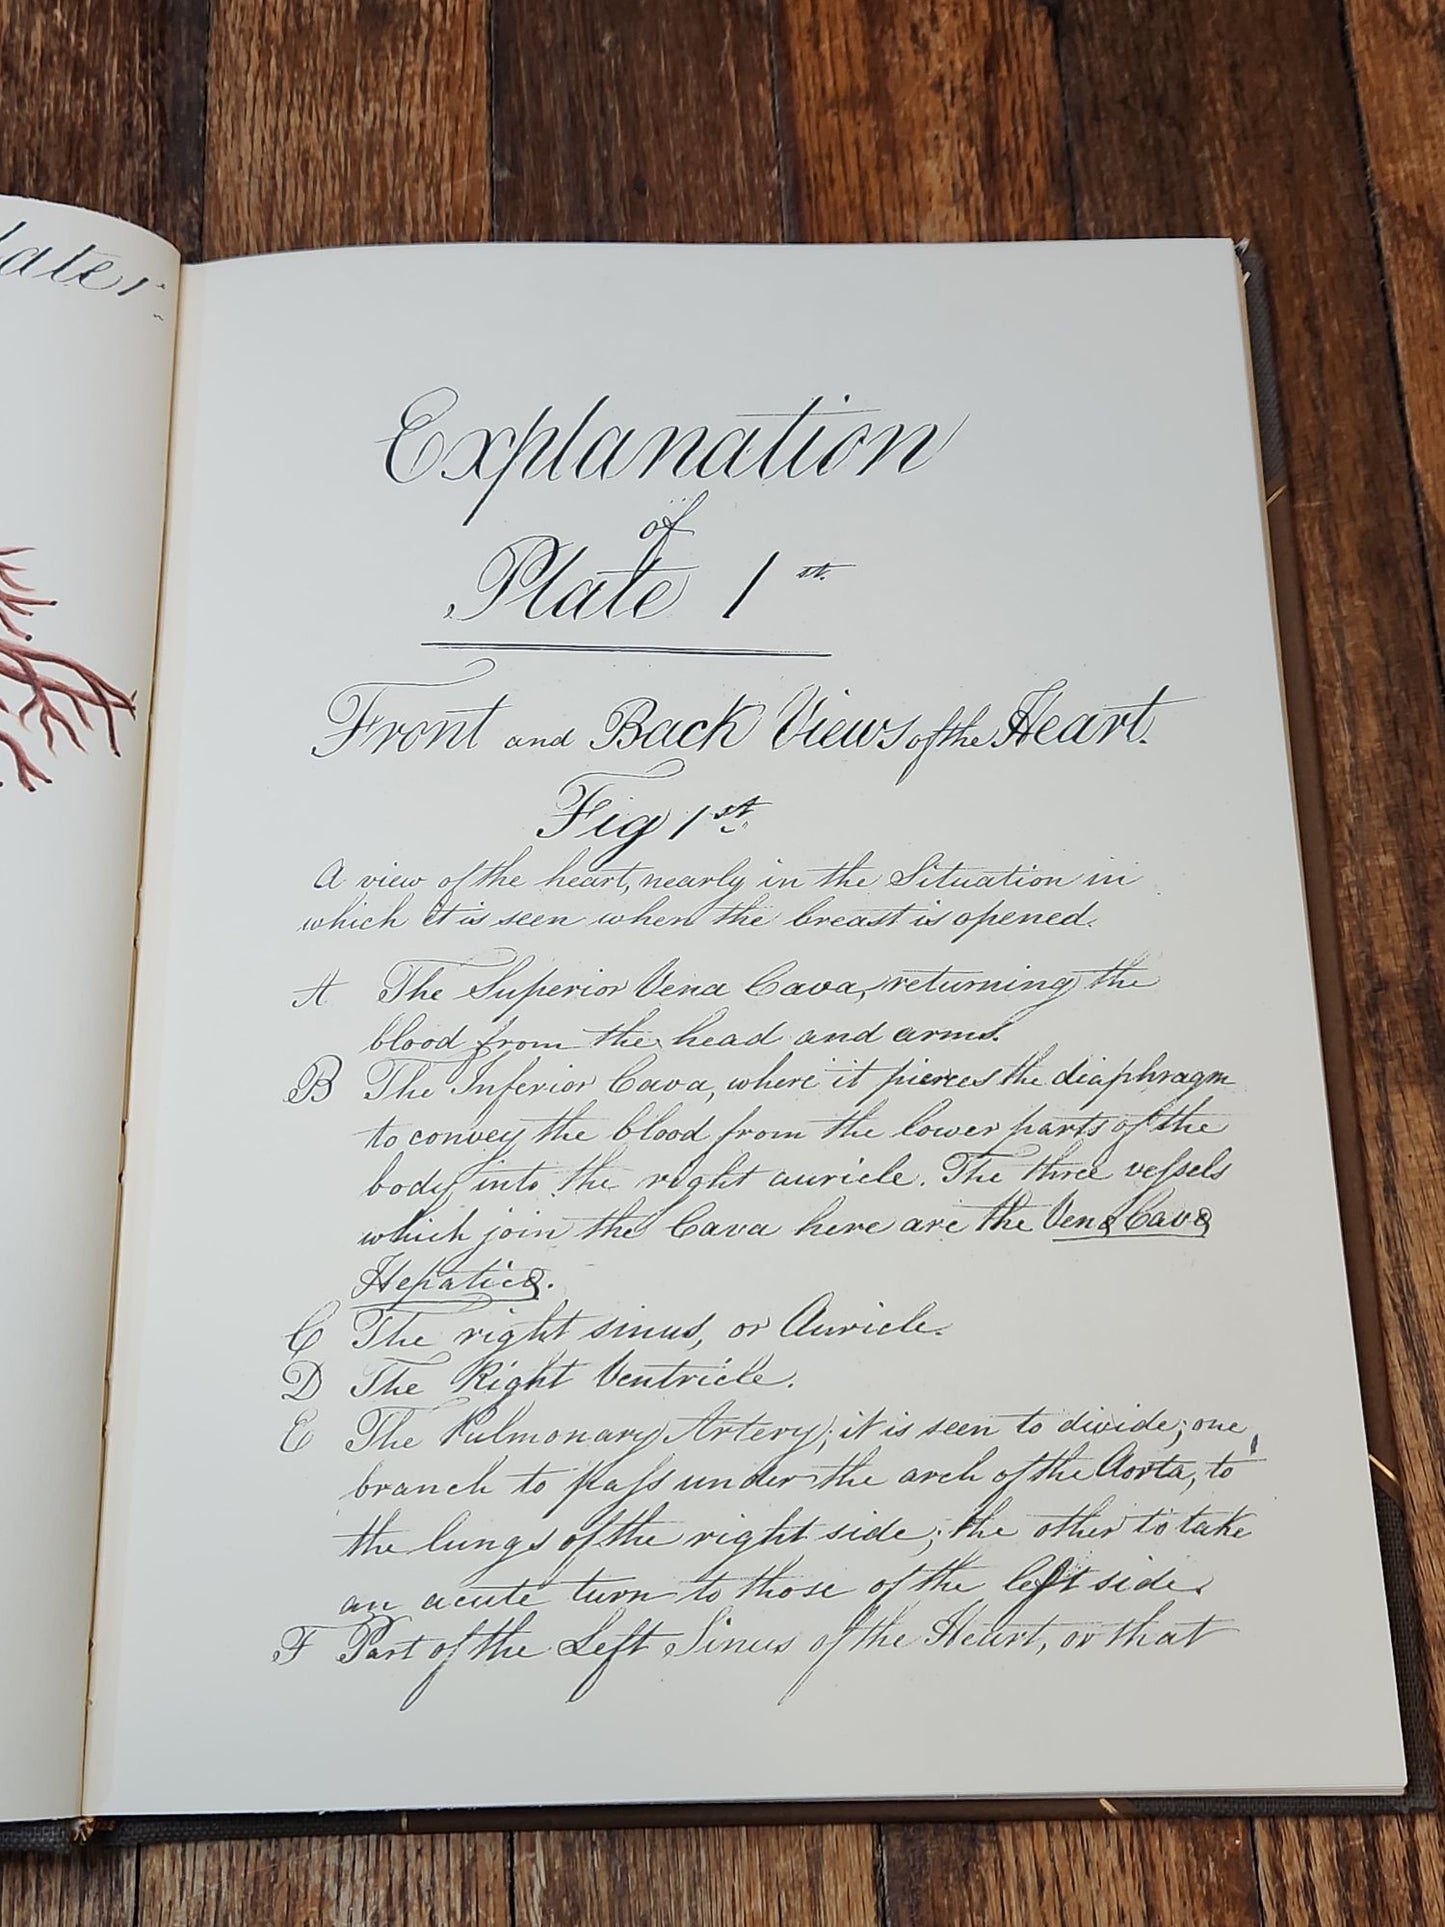 late 1st
Explanation
of
Plate 1st.
Front and Back Views of the Heart.
Fig 1st.
A view of the heart, nearly in the Situation in
which it is seen when the breast is opened.
A The Superior Vena Cava, returning the
blood from the head and arms.
B The Inferior Cava, where it pierces the diaphragm
to convey the blood from the lower parts of the
body into the right auricle. The three veſsels
which join the Cava here are the Venæ Cavæ
Hepaticæ.
C The right sinus, or Auricle.
D The Right Ventricle.
E The Pulmonary Artery; it is seen to divide; one
branch to paſs under the arch of the Aorta, to
the lungs of the right side; the other to take
an acute turn to those of the left side.
F Part of the Left Sinus of the Heart, or that